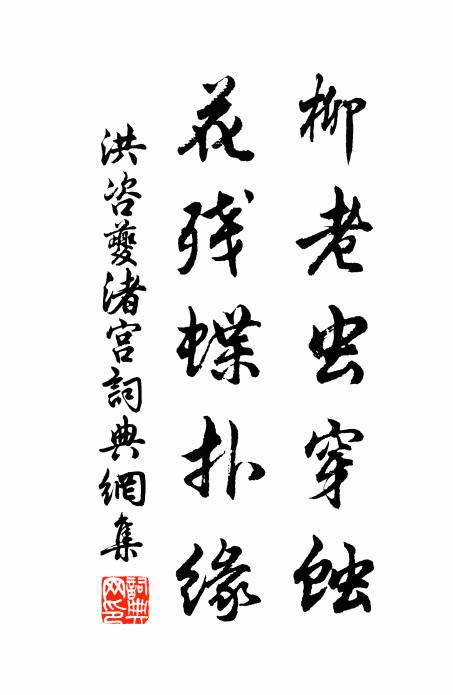 柳老虫穿蚀
花残蝶扑缘
洪咨夔渚宫詞典網集
詞典網印